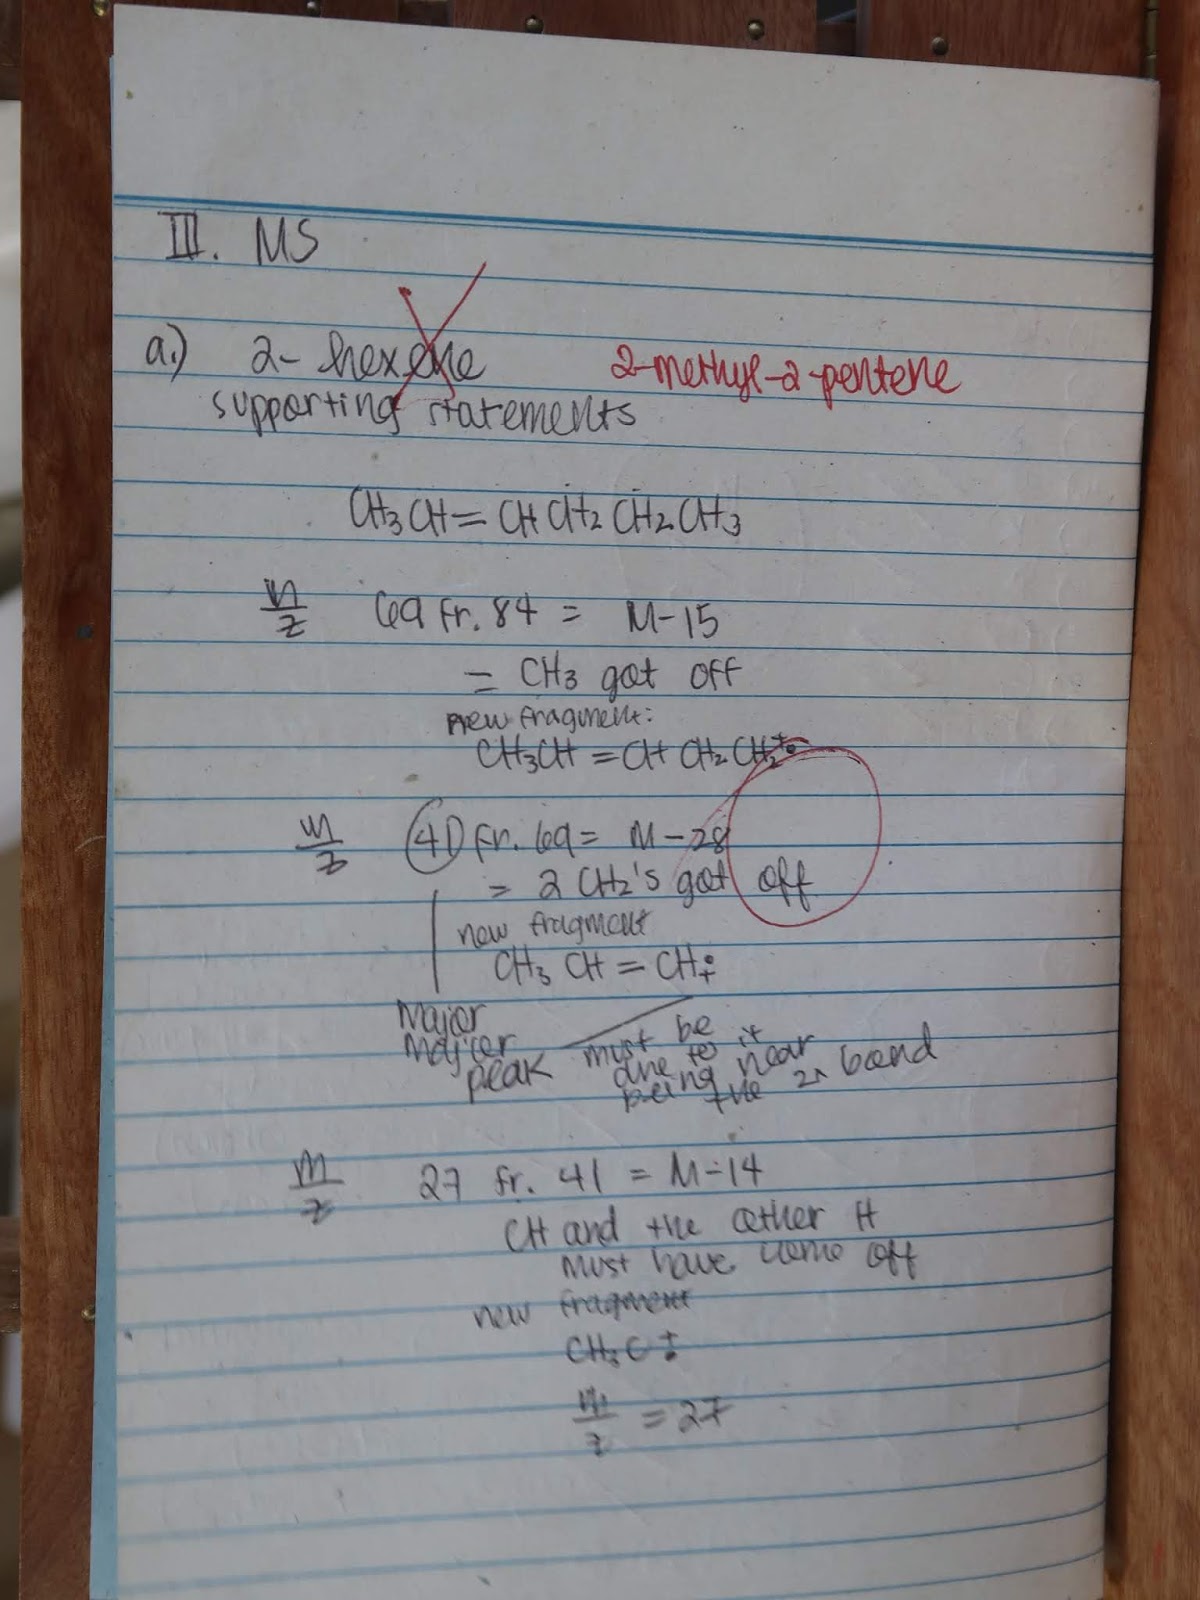 III. MS
a.) 2-hexene 2-methyl-2-pentene
supporting statements
CH3CH=CHCH2CH2CH3
m/z 69 fr. 84 = M-15
= CH3 got off
new fragment:
CH3CH=CH CH2 CH2+•
m/z 41 fr. 69 = M-28
= 2 CH2's got off
new fragment
CH3 CH = CH•+
Major
peak must be
due to it
being near
the bond
m/z 27 fr. 41 = M-14
CH and the other H
must have come off
new fragment
CH3C+•
m/z = 27